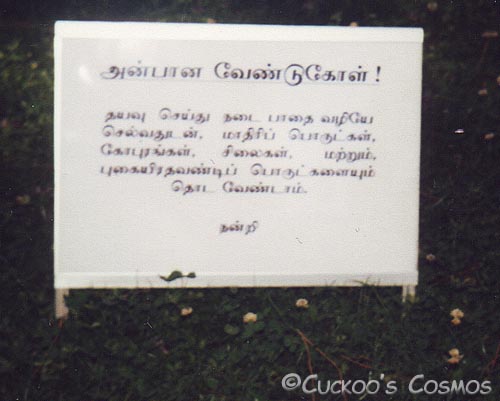 அன்பான வேண்டுகோள் !
தயவு செய்து நடை பாதை வழியே
செல்வதுடன், மாதிரிப் பொருட்கள்,
கோபுரங்கள், சிலைகள், மற்றும்,
புகையிரதவண்டிப் பொருட்களையும்
தொட வேண்டாம்.
நன்றி
©Cuckoo's Cosmos